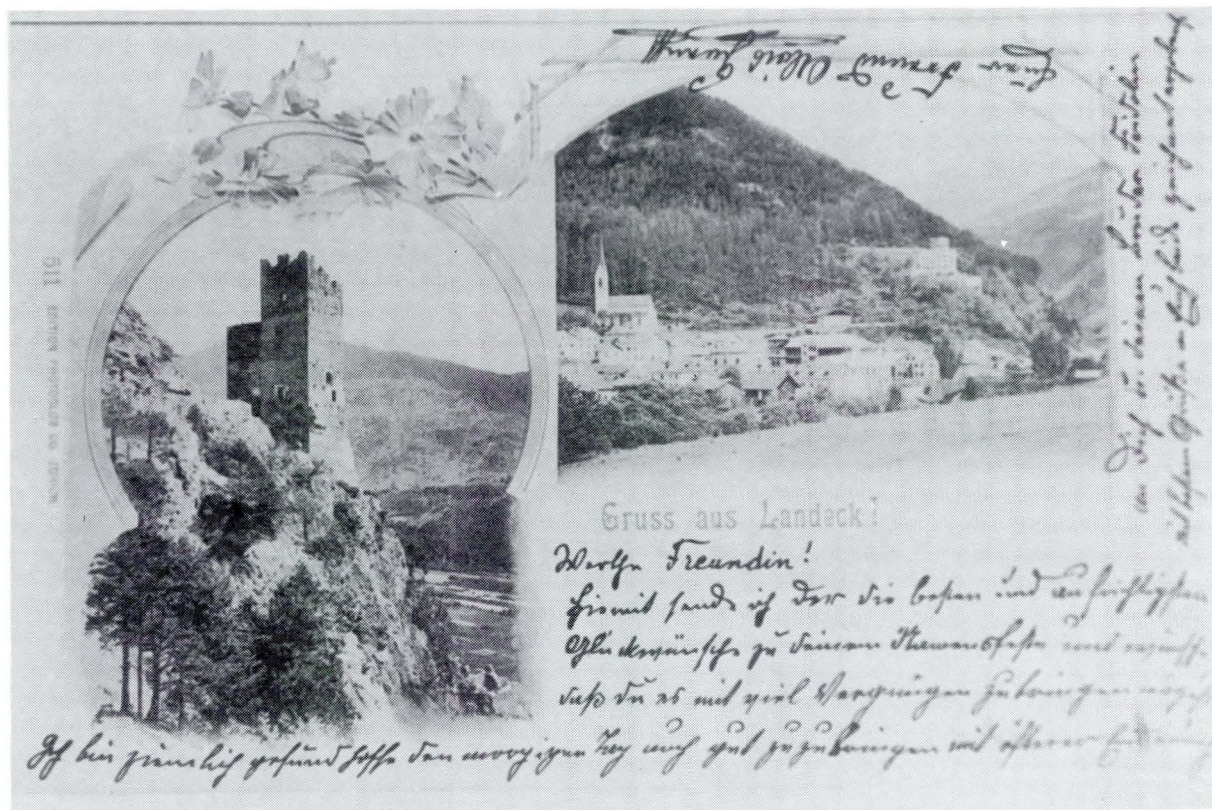 Gruss aus Landeck!
Werthe Freundin!
Hiemit sende ich Dir die besten und aufrichtigsten
Glückwünsche zu deinem Namensfeste und wünsche
daß du es mit viel Vergnügen zubringen mögest
Ich bin ziemlich gesund hoffe den morgigen Tag auch gut zuzubringen mit öfterer Erinnerung
an dich du deinen
mit besten Grüße
Euer Freund Alois
119